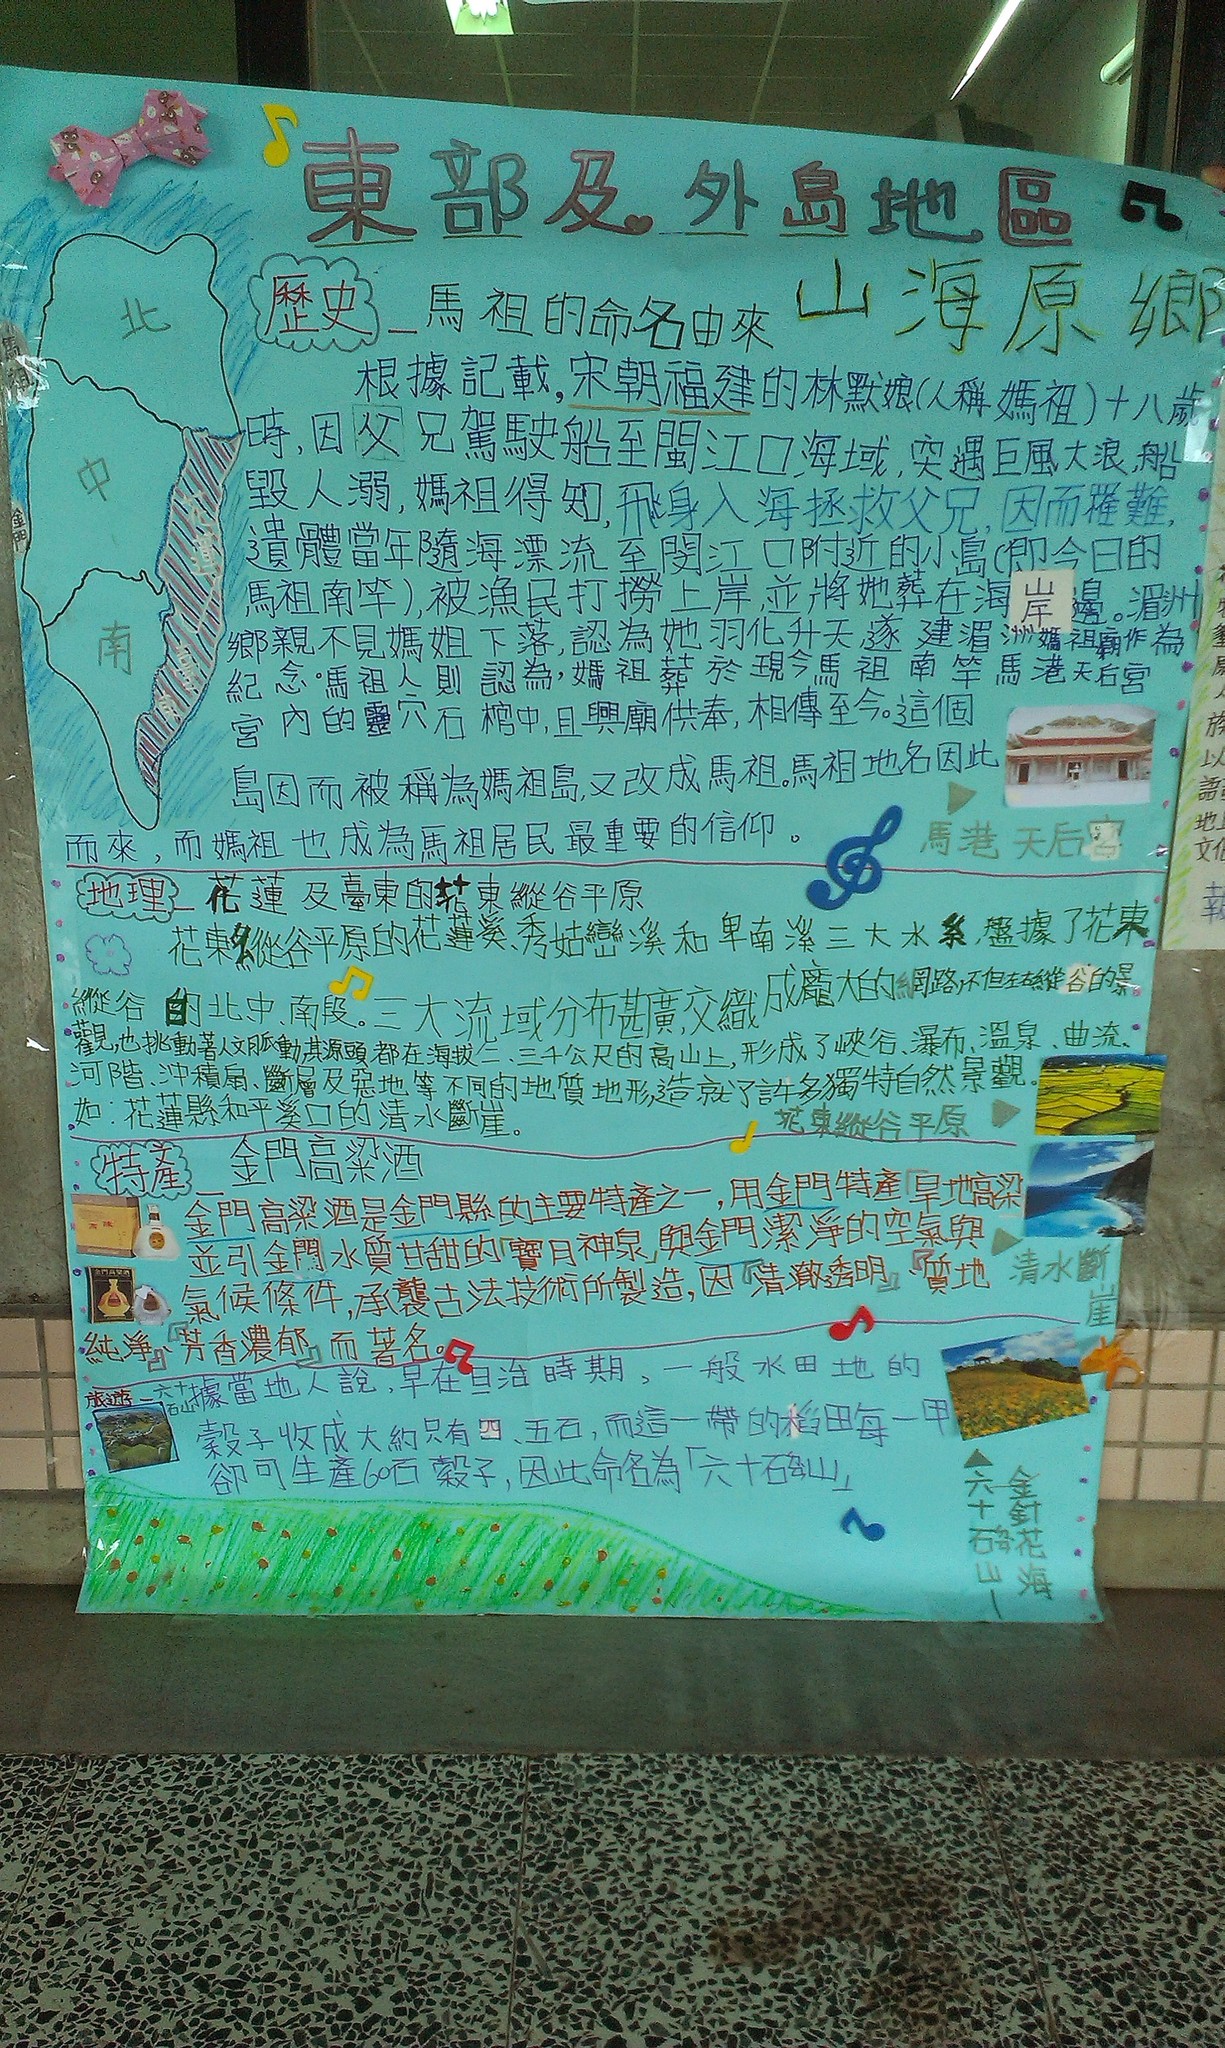 東部及外島地區
山海原鄉
北
中
南
馬祖
金門
花蓮
臺東
歷史_馬祖的命名由來
根據記載,宋朝福建的林默娘(人稱媽祖)十八歲
時,因父兄駕駛船至閩江口海域,突遇巨風大浪,船
毀人溺,媽祖得知,飛身入海拯救父兄,因而罹難,
遺體當年隨海漂流至閩江口附近的小島(即今日的
馬祖南竿),被漁民打撈上岸,並將她葬在海岸邊。湄洲
鄉親不見媽祖下落,認為她羽化升天,遂建湄洲媽祖廟作為
紀念。馬祖人則認為,媽祖葬於現今馬祖南竿馬港天后宮
宮內的靈穴石棺中,且興廟供奉,相傳至今。這個
島因而被稱為媽祖島,又改成馬祖。馬祖地名因此
而來,而媽祖也成為馬祖居民最重要的信仰。
馬港天后宮
地理_花蓮及臺東的花東縱谷平原
花東縱谷平原的花蓮溪、秀姑巒溪和卑南溪三大水系,盤據了花東
縱谷的北、中、南段。三大流域分布甚廣,交織成龐大的網路,不但左右縱谷的景
觀,也挑動著人文脈動,其源頭都在海拔二、三千公尺的高山上,形成了峽谷、瀑布、溫泉、曲流、
河階、沖積扇、斷層及惡地等不同的地質地形,造就了許多獨特自然景觀。
如:花蓮縣和平溪口的清水斷崖。
花東縱谷平原
特產_金門高粱酒
金門高粱酒是金門縣的主要特產之一,用金門特產「旱地高粱
並引金門水質甘甜的「寶月神泉」與金門潔淨的空氣與
氣候條件,承襲古法技術所製造,因『清澈透明』、『質地
純淨』、『芳香濃郁』而著名。
清水斷崖
旅遊_六十石山
據當地人說,早在日治時期,一般水田地的
穀子收成大約只有四、五石,而這一帶的稻田每一甲
卻可生產60石穀子,因此命名為「六十石山」
金針花海
六十石山